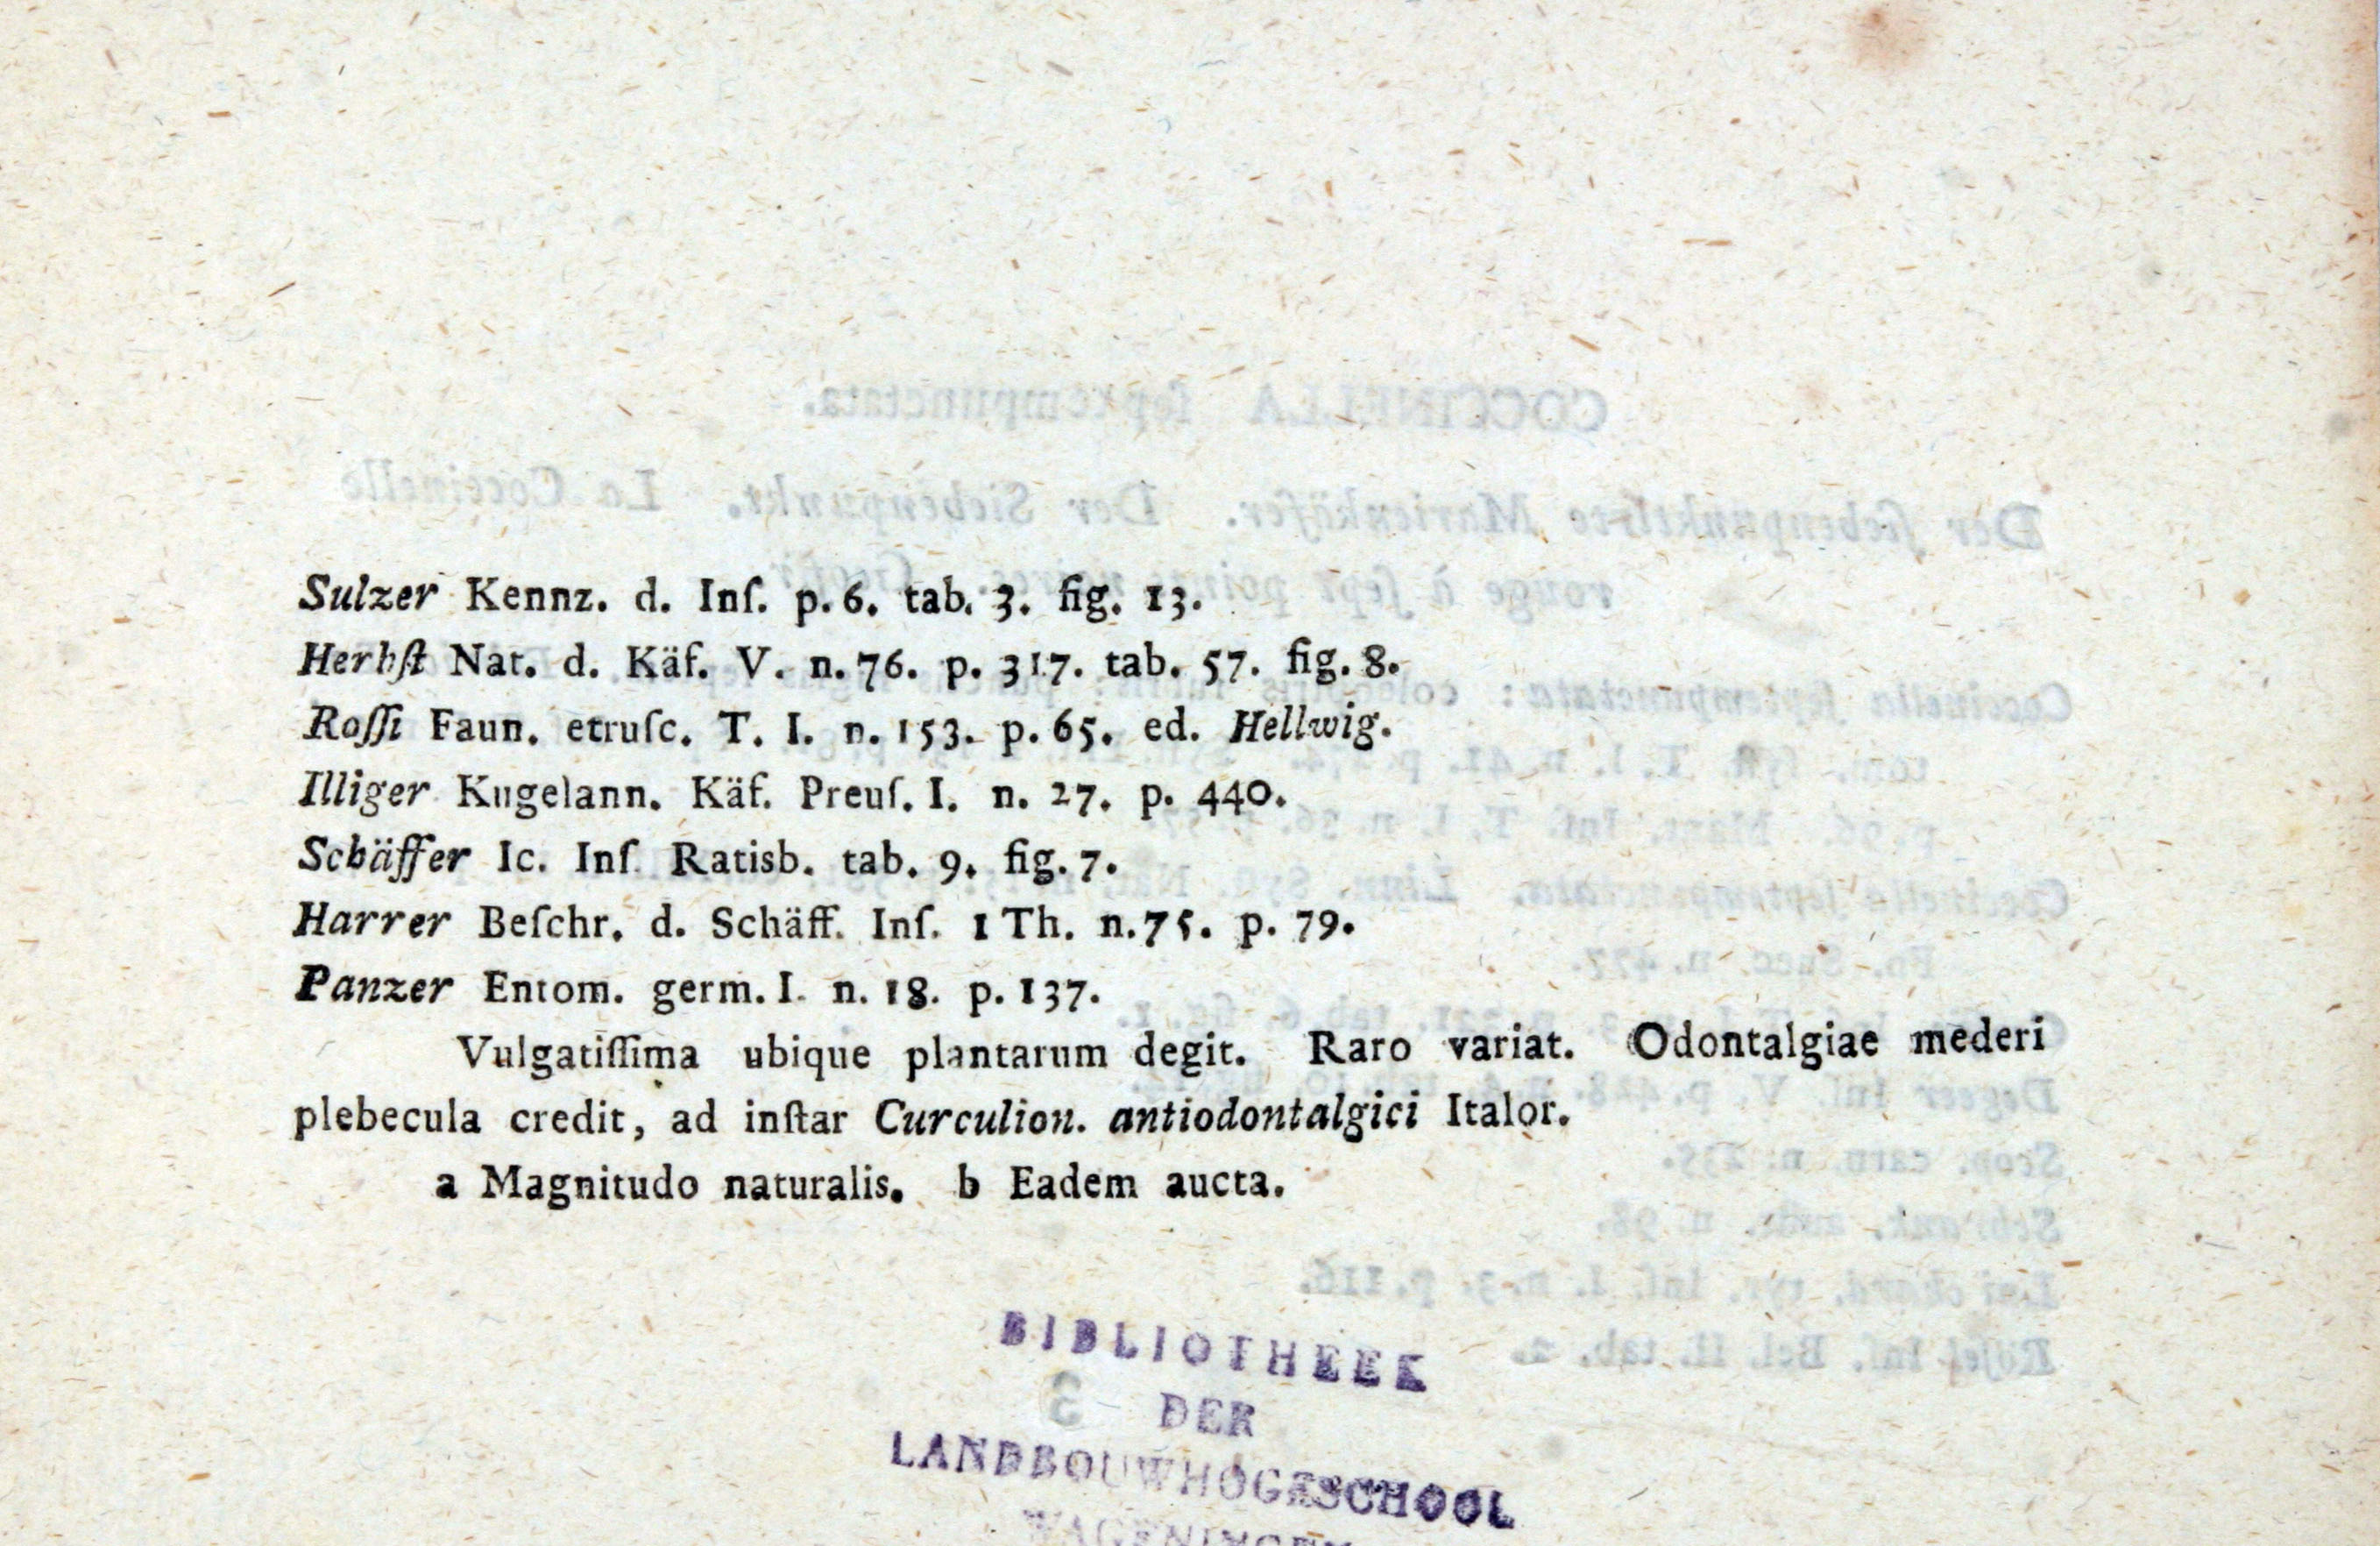 Sulzer Kennz. d. Inſ. p. 6. tab. 3. fig. 13.
Herbſt Nat. d. Käf. V. n. 76. p. 317. tab. 57. fig. 8.
Roſſi Faun. etruſc. T. I. n. 153. p. 65. ed. Hellwig.
Illiger Kugelann. Käf. Preuſ. I. n. 27. p. 440.
Schäffer Ic. Inſ Ratisb. tab. 9. fig. 7.
Harrer Beſchr. d. Schäff. Inſ. 1 Th. n. 75. p. 79.
Panzer Entom. germ. I. n. 18. p. 137.
Vulgatiſſima ubique plantarum degit. Raro variat. Odontalgiae mederi
plebecula credit, ad inſtar Curculion. antiodontalgici Italor.
a Magnitudo naturalis. b Eadem aucta.
BIBLIOTHEEK
DER
LANDBOUWHOGESCHOOL
WAGENINGEN